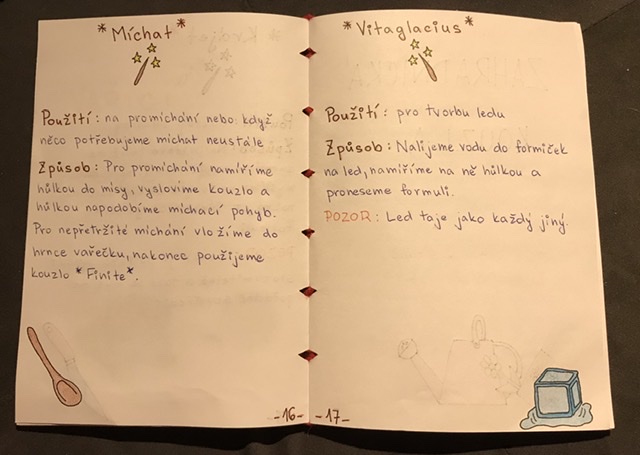 *Míchat*
Použití: na promíchání nebo když
něco potřebujeme míchat neustále
Způsob: Pro promíchání namíříme
hůlkou do mísy, vyslovíme kouzlo a
hůlkou napodobíme míchací pohyb.
Pro nepřetržité míchání vložíme do
hrnce vařečku, nakonec použijeme
kouzlo *Finite*.
-16-
*Vitaglacius*
Použití: pro tvorbu ledu
Způsob: Nalijeme vodu do formiček
na led, namíříme na ně hůlkou a
proneseme formuli.
POZOR: Led taje jako každý jiný.
-17-